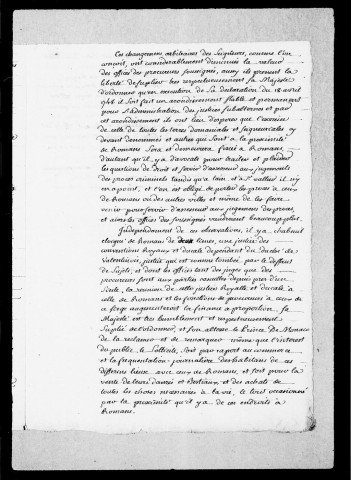 Ces changemens arbitraires des Seigneurs, comme l'on
conçoit, ont considerablement diminués la valeur
des offices des procureurs soussignés, aussy ils prenent la
liberté de suplier tres respectueusement Sa Majesté
d'ordonner qu'en execution de Sa declaration du 18 avril
il soit fait un arondissement stable et permanent
pour l'administration des justices subalternes et par
cet arondissement ils ont lieu d'esperer que l'exercice
de celle de toutes les terres domaniales et seigneuriales cy
devant denommés et autres qui sont a la proximité
de Romans sera et demeurera fixée a Romans,
d'autant qu'il y a d'avocats pour traiter et plaider
les questions de droit et servir d'assesseur aux jugements
des proces criminels tandis qu'a St Vallier il n'y
en a point, et l'on est obligé de porter les proces a ceux
de Romans ou des autres villes et même de les faire
venir pour servir d'assesseur aux jugemens des proces,
et ainsi les offices des soussignés vaudroient beaucoup plus.
Independamment de ces observations, il y a chabeuil
eloigné de Romans de deux lieues, une justice des
conventions Royaux et ducale dependant du duché de
Valentinois, justice qui est comme tombée par le deffaut
de sujets, et dont les offices tant des juges que des
procureurs sont aux parties casuelles depuis pres d'un
Siecle, la reunion de cette justice Royalle et ducale a
celle de Romans et les fonctions de procureurs a ceux de
ce siege augmenteroit la finance a proportion, Sa
Majesté est tres humblement et respectueusement
Supliée de l'ordonner, et son altesse le Prince De Monaco
de la reclamer et de remarquer même que l'interest
du public le sollicite, soit par raport au commerce
et la frequentation journaliere des habitans de ces
differens lieux avec ceux de Romans, et soit pour la
vente de leurs danrées et Bestiaux et des achats de
toutes les choses necessaires a la vie, le tout occasionné
par la proximité qu'il y a de ces endroits a
Romans.